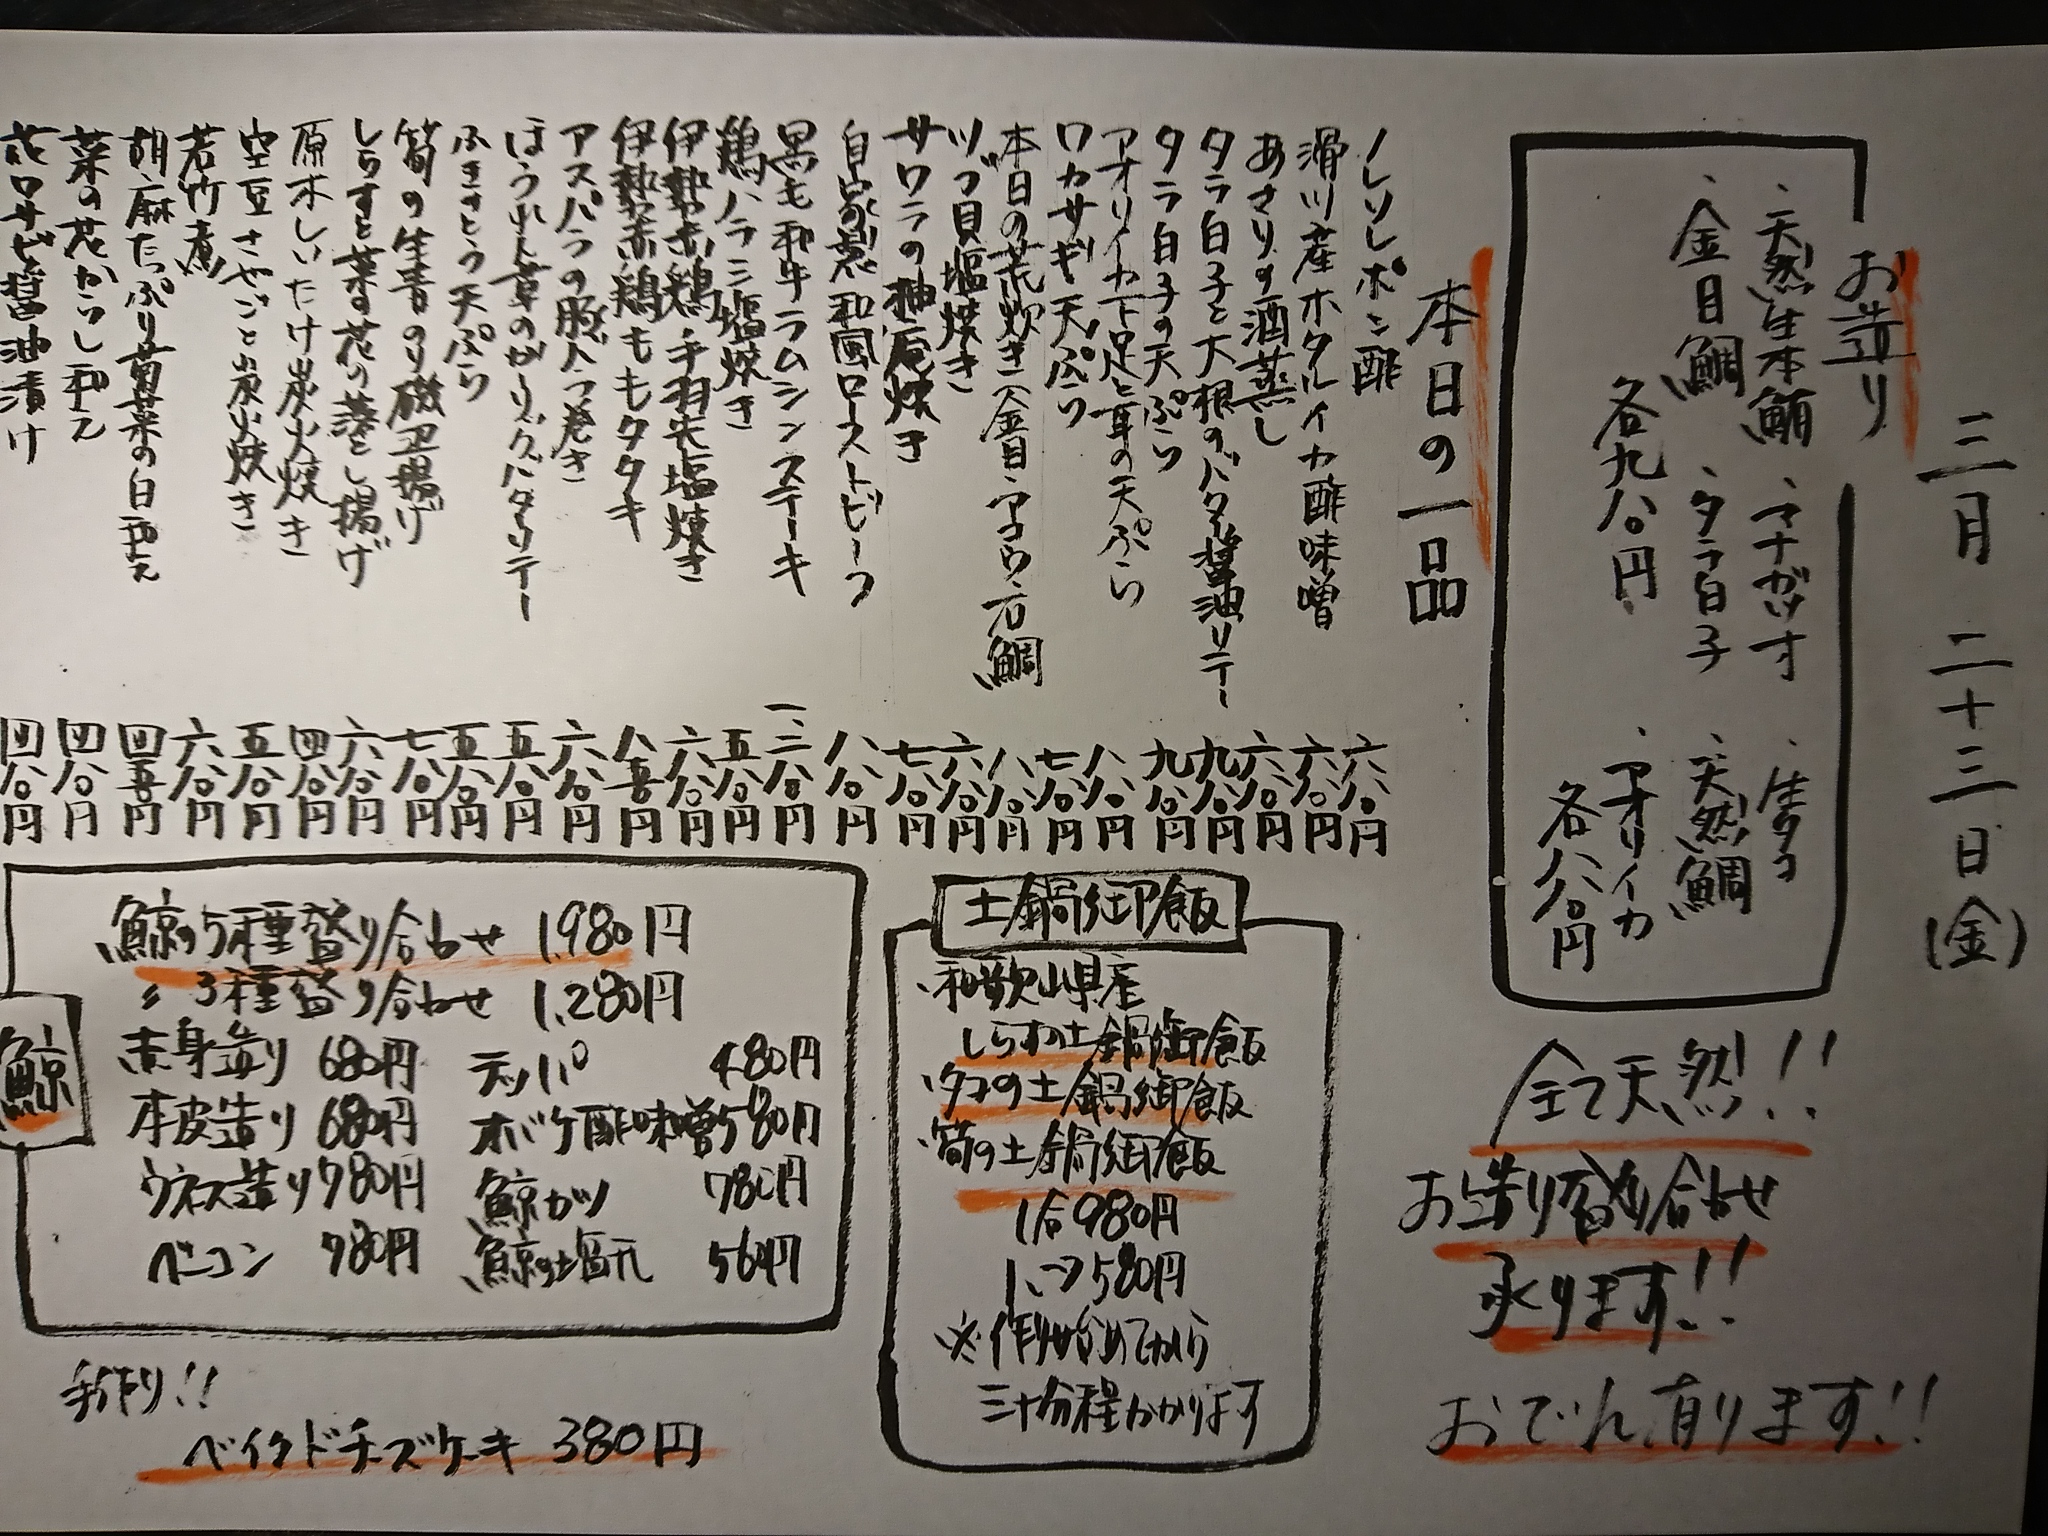 三月 二十三日(金)
お造り
、天然生本鮪 、マナガツオ 、生タコ
、金目鯛 、タラ白子 、天然鯛
各九八〇円 、アオリイカ
各八八〇円
全て天然!!
お造り盛り合わせ
承ります!!
おでん有ります!!
本日の一品
ノレソレポン酢 六八〇円
滑川産ホタルイカ酢味噌 六八〇円
あさりの酒蒸し 六八〇円
タラ白子と大根のバター醤油ソテー 九八〇円
タラ白子の天ぷら 九八〇円
アオリイカ下足と耳の天ぷら 八八〇円
ワカサギ天ぷら 七八〇円
本日の荒炊き(金目、マコウ、石鯛 八八〇円
ツブ貝塩焼き 六八〇円
サワラの柚庵焼き 七八〇円
自家製和風ローストビーフ 八八〇円
黒毛和牛ラムシンステーキ 一二八〇円
鶏ハラミ塩焼き 五八〇円
伊勢赤鶏手羽先塩焼き 六八〇円
伊勢赤鶏ももタタキ 八五〇円
アスパラの豚バラ巻き 六八〇円
ほうれん草のガーリックバターソテー 五八〇円
ふきのとう天ぷら 五八〇円
筍の生青のり磯辺揚げ 七八〇円
しらすと菜の花の落とし揚げ 六八〇円
原木しいたけ炭火焼き 四八〇円
空豆さやごと炭火焼き 五八〇円
若竹煮 六八〇円
胡麻たっぷり菊菜の白和え 四五〇円
菜の花からし和え 四八〇円
花ワサビ醤油漬け 四八〇円
土鍋御飯
、和歌山県産
しらすの土鍋御飯
、タコの土鍋御飯
、筍の土鍋御飯
1合980円
1.5〃580円
※作り始めてから
三十分程かかります
鯨
鯨の5種盛り合わせ 1,980円
〃3種盛り合わせ 1,280円
赤身造り 680円 テッパ 480円
本皮造り 680円 オバケ酢味噌580円
ウネス造り780円 鯨カツ 780円
ベーコン 780円 鯨の塩元 560円
手作り!!
ベイクドチーズケーキ 380円